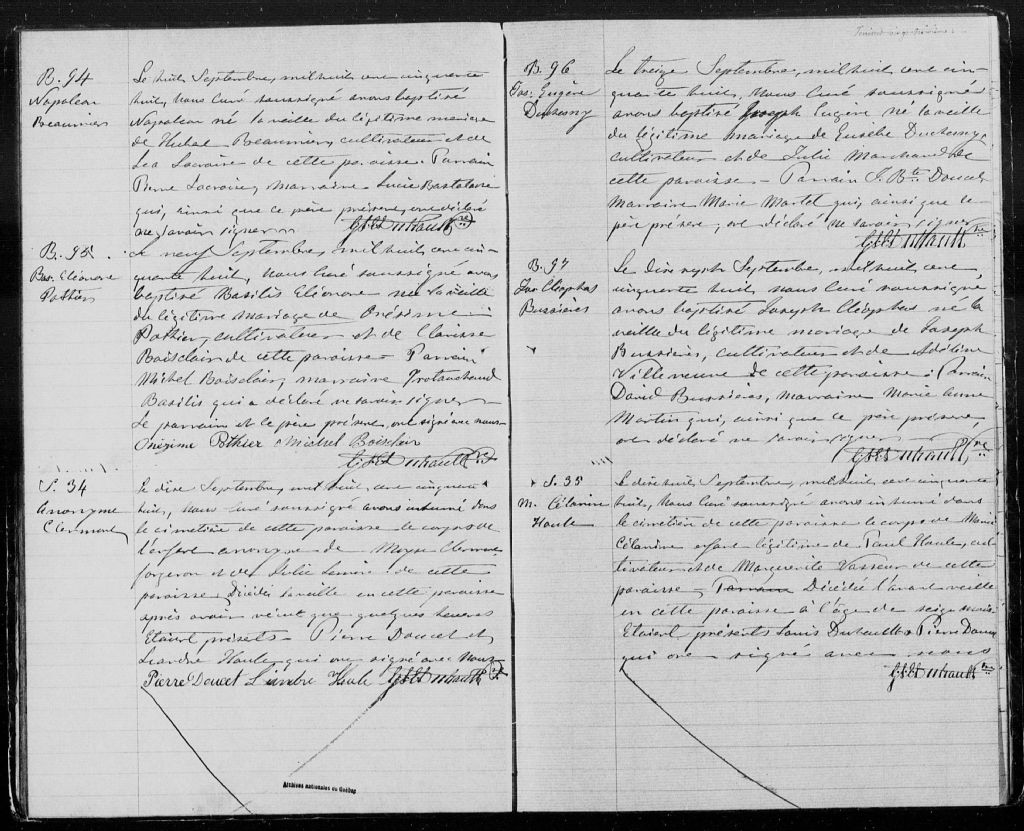 B. 94
Napoleon
Beaumier
Le huit Septembre, mil huit cent cinquante
huit, Nous Curé soussigné avons baptisé
Napoléon né la veille du légitime mariage
de Hubal Beaumier, cultivateur et de
Léa Lacroix de cette paroisse. Parrain
Pierre Lacroix, marraine Lucie
qui, ainsi que ce père présent, ont déclaré
ne savoir signer
B. 95
Bas. Eléonore
Pothier
Le neuf Septembre, mil huit cent cin-
quante huit, Nous Curé soussigné avons
baptisé Basilis Eléonore née la veille
du légitime mariage de Onésime
Pothier, cultivateur et de Clarisse
Boisclair de cette paroisse - Parrain
Michel Boisclair, marraine
Basilis qui a déclaré ne savoir signer -
Le parrain et le père présent, ont signé avec nous
Onizime Pothier Michel Boisclair
S. 34
Anonyme
Clermont
Le dixe Septembre, mil huit cent cinquante
huit, Nous Curé soussigné avons inhumé dans
le cimetière de cette paroisse le corps de
l'enfant anonyme de Moyse Clermont
forgeron et de Julie de cette
paroisse Décédé la veille en cette paroisse
après avoir vécut que quelques heures
Etaient présents - Pierre Doucet et
Léandre Houle qui ont signé avec Nous
Pierre Doucet Léandre Houle
B. 96
Jos. Eugène
Duchesny
Le treize Septembre, mil huit cent cin-
quante huit, Nous Curé soussigné
avons baptisé Joseph Eugène né la veille
du légitime mariage de Eusèbe Duchesny,
cultivateur et de Julie Marchand de
cette paroisse - Parrain J. Bte Doucet
Marraine Marie Martel qui, ainsi que le
père présent, ont déclaré ne savoir signer
B. 97
Jos Cléophas
Bussières
Le dix Septembre, mil huit cent
cinquante huit, Nous Curé soussigné
avons baptisé Joseph Cléophas né la
veille du légitime mariage de Joseph
Bussières, cultivateur et de Adéline
Villeneuve de cette paroisse : Parrain
David Bussières, Marraine Marie Anne
Martin qui, ainsi que ce père présent,
ont déclaré ne savoir signer
S. 35
M. Célanire
Houle
Le dix huit Septembre, mil huit cent cinquante
huit, Nous Curé soussigné avons inhumé dans
le cimetière de cette paroisse le corps de Marie
Célanire enfant légitime de Paul Houle, cul-
tivateur et de Marguerite Vasseur de cette
paroisse - Décédée l'avant veille
en cette paroisse à l'âge de seize
Etaient présents Louis Duhault & Pierre Doucet
qui ont signé avec nous
Archives nationales du Québec